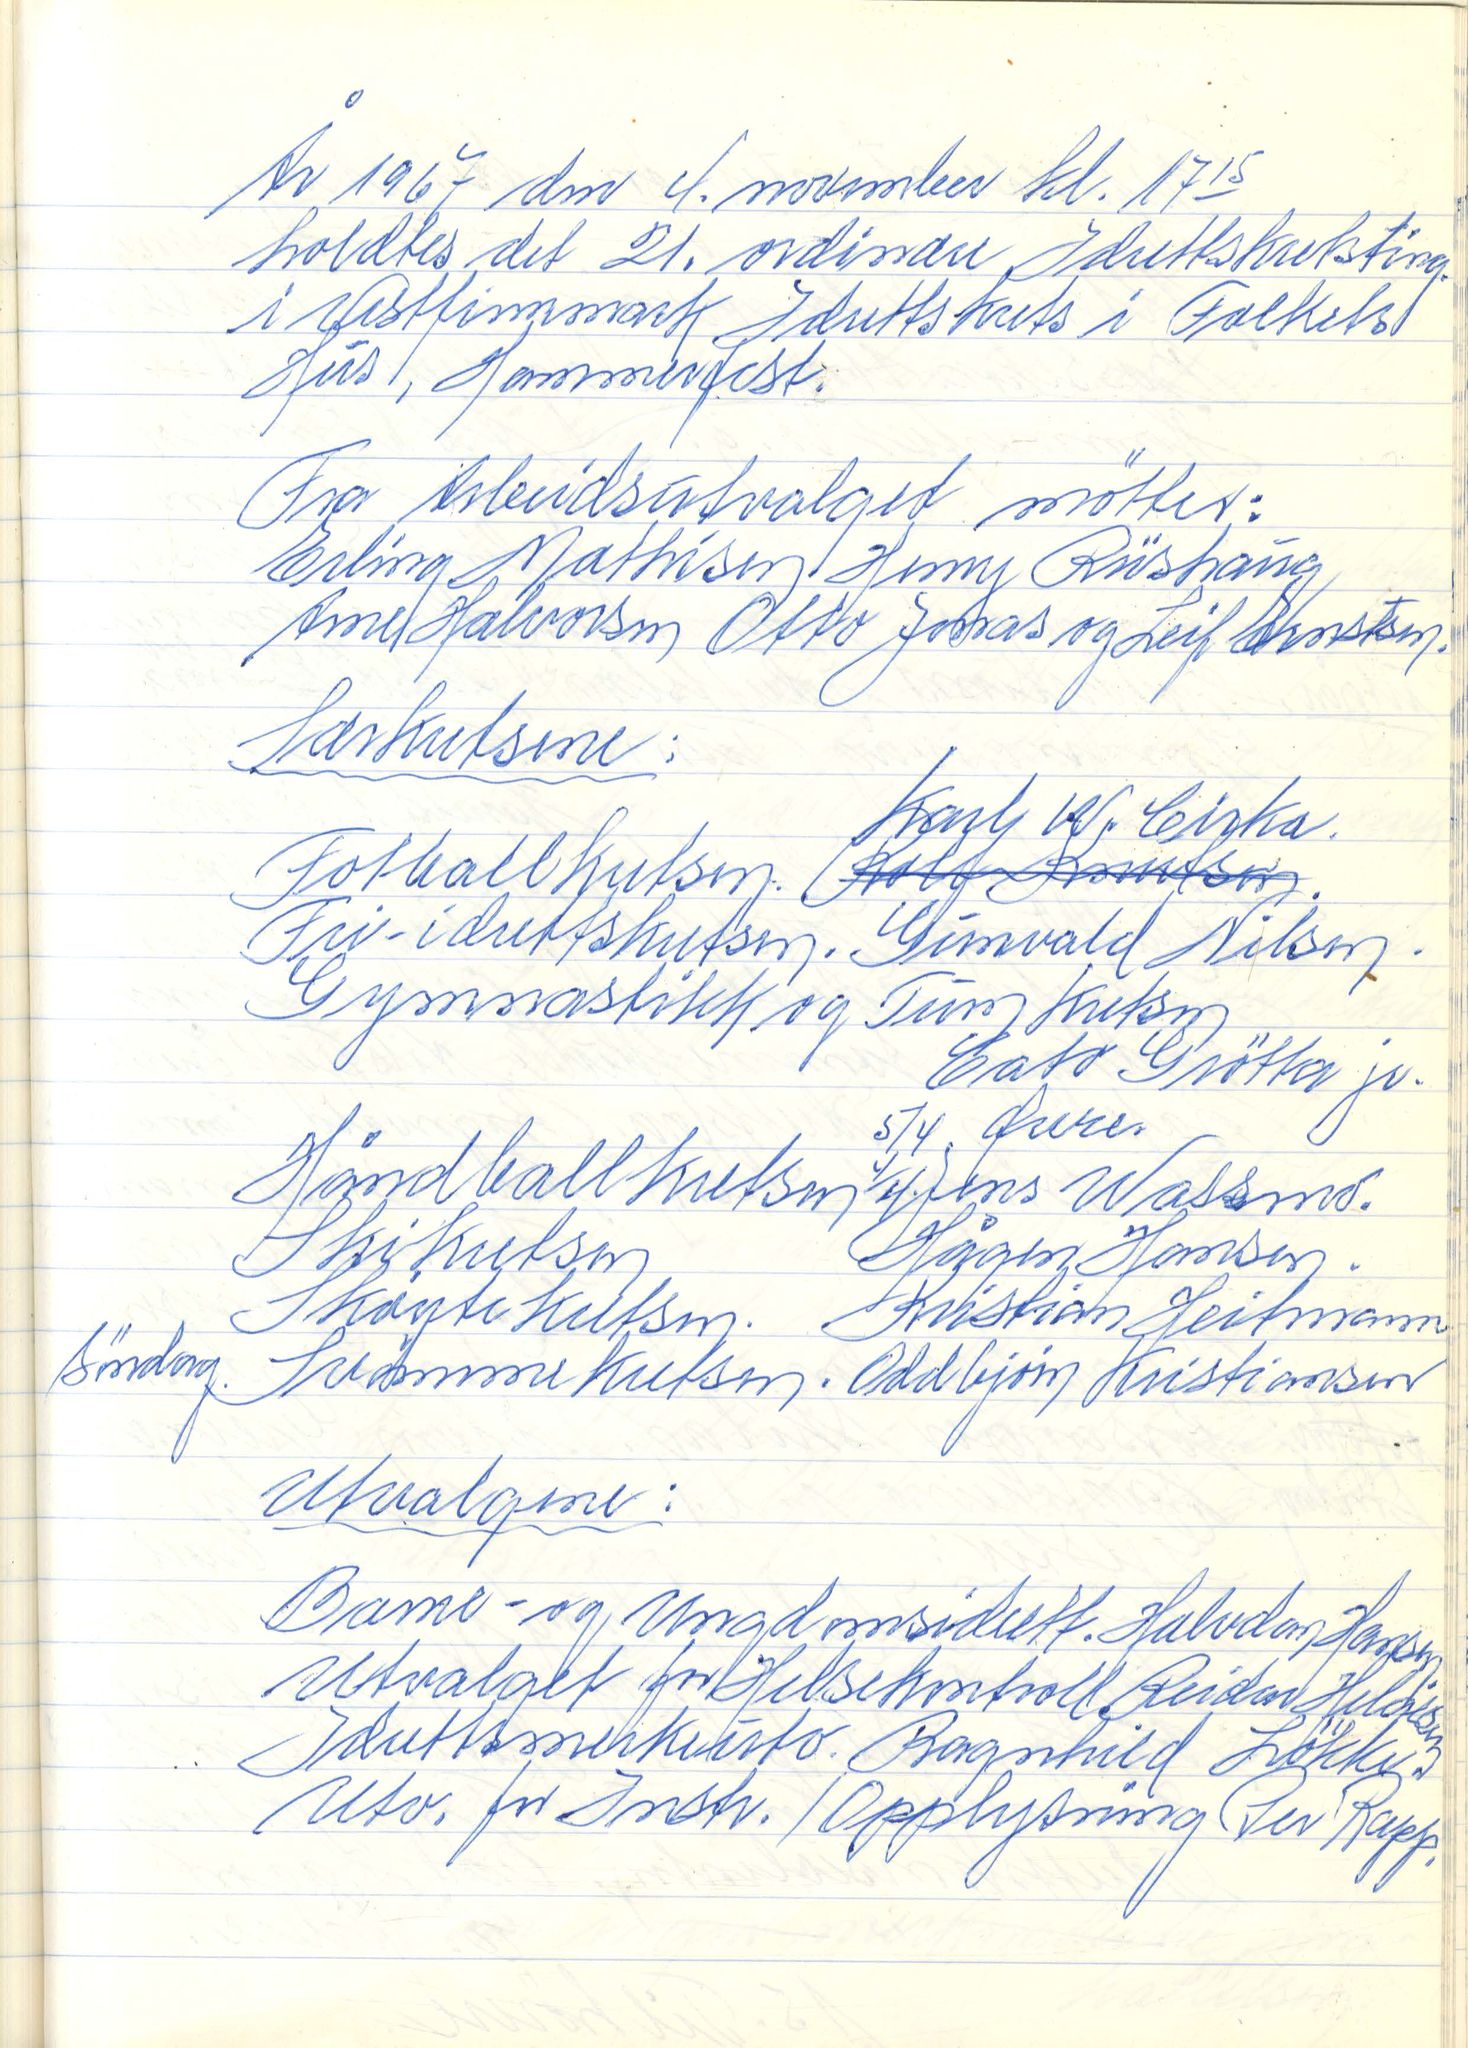 År 1967 den 4. november kl. 17 15
holdtes det 21. ordinære Idrettskretsting
i Vestfinnmark Idrettskrets i Folkets
Hus, Hammerfest.
Fra Arbeidsutvalget møtter:
Erling Mathisen Henny
Arne Halvorsen Otto Jonas og Leif Ernstsen.
Særkretsene:
Karl W. Cirka.
Fotballkretsen. Rolf Knutsen.
Fri-idrettskretsen. Gunvald Nilsen.
Gymnastikk og Turn kretsen
Cato Grøtta jr.
5/4.
Håndballkretsen Jens Wassmo.
Skikretsen Hågen Hansen.
Skøytekretsen. Kristian Heitmann
Søndag. Svømmekretsen. Oddbjørn Kristiansen
Utvalgene:
Barne- og Ungdomsidrett. Halvdan Hansen
Utvalget for Helsekontroll Reidar
Idrettsmerkeutv. Ragnhild Løkke.
Utv. for Instr. / Opplysning Per Rapp.